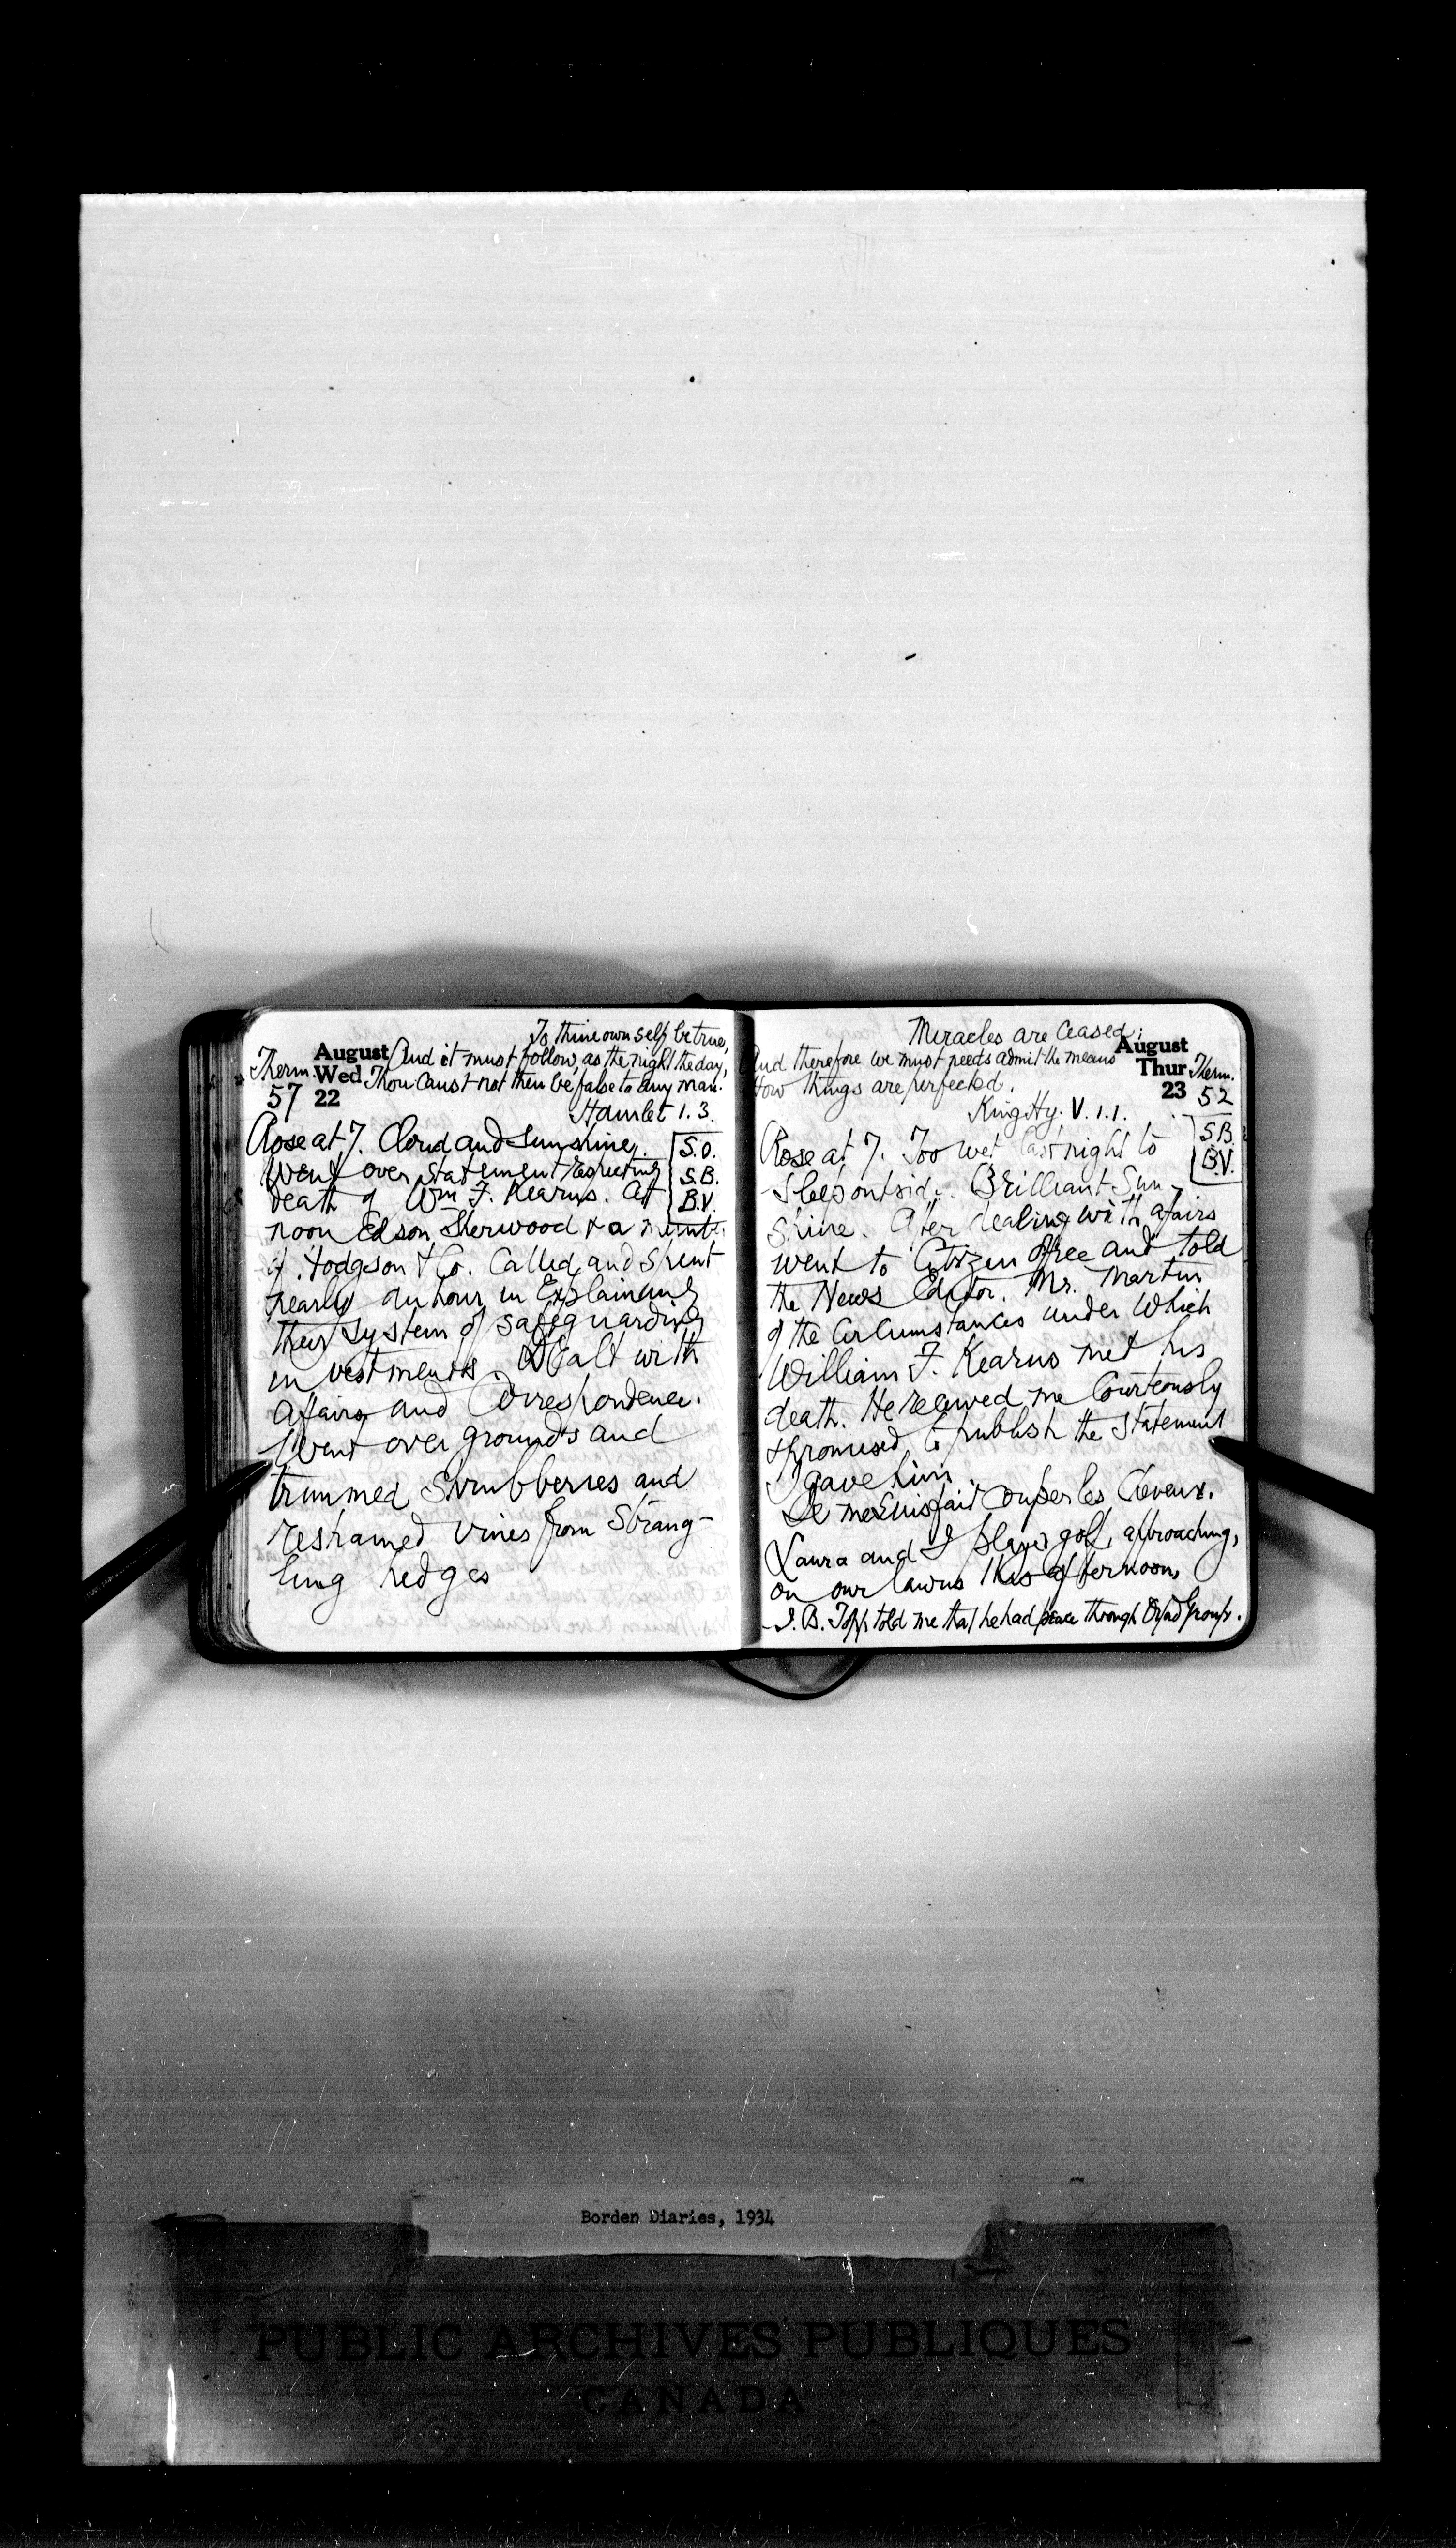 To thine own self be true,
And it must follow, as the night the day,
Thou canst not then be false to any man.
Hamlet 1. 3.
August
Wed
22
Therm.
57
Rose at 7. Cloud and sunshine.
S.O.
S.B.
B.V.
Went over statement respecting
death of Wm F. Kearns. At
noon Edson Sherwood & a
of Hodgson & Co. called and spent
nearly an hour in explaining
their system of safeguarding
investments. Dealt with
affairs and correspondence.
Went over grounds and
trimmed shrubberies and
restrained vines from strang-
ling hedges
Miracles are ceased;
And therefore we must needs admit the means
How things are perfected.
King Hy. V. 1.1.
August
Thur
23
Therm.
52
S.B.
B.V.
Rose at 7. Too wet last night to
sleep outside. Brilliant sun-
shine. After dealing with affairs
went to Citizen office and told
the News Editor, Mr. Martin
of the circumstances under which
William F. Kearns met his
death. He received me courteously
& promised to publish the statement
I gave him.
Je me suis fait couper les cheveux.
Laura and I played golf, approaching,
on our lawns this afternoon.
J.B. Topp told me that he had peace through Oxford Group.
Borden Diaries, 1934
PUBLIC ARCHIVES PUBLIQUES
CANADA